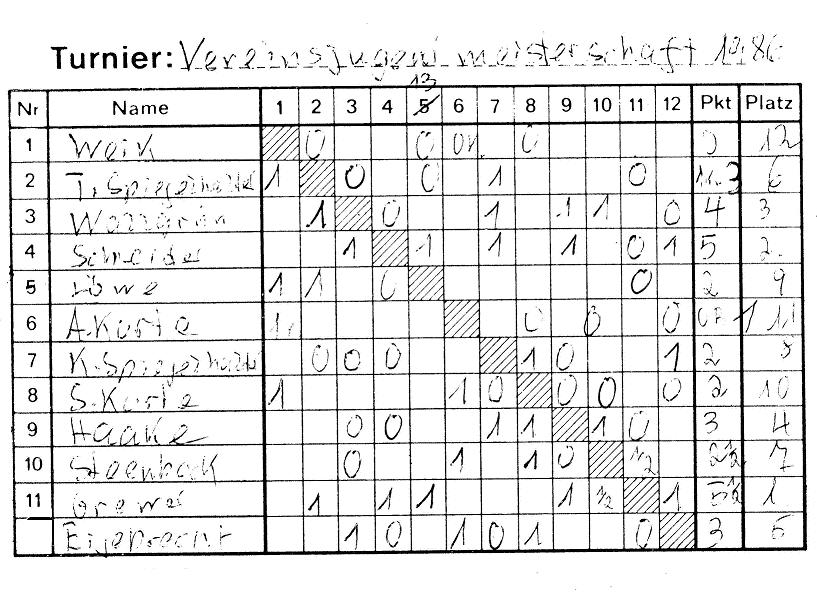 Turnier: Vereinsjugendmeisterschaft 1986
13
Nr Name 1 2 3 4 5 6 7 8 9 10 11 12 Pkt Platz
1 Weik 0 0 0 0 12
2 T. Spiegelhalter 1 0 0 1 0 3 6
3 1 0 1 1 1 0 4 3
4 Schneider 1 1 1 1 0 1 5 2.
5 Löwe 1 1 0 0 2 9
6 A. Korte 1 0 0 0 1 11
7 K. Spiegelhalter 0 0 0 1 0 1 2
8 S. Korte 1 1 0 0 0 0 2 10
9 Haake 0 0 1 1 1 0 3 4
10 Steenbock 0 1 1 0 1/2 2 1/2 7
11 1 1 1 1 1/2 1 5 1/2 1
1 0 1 0 1 0 3 5